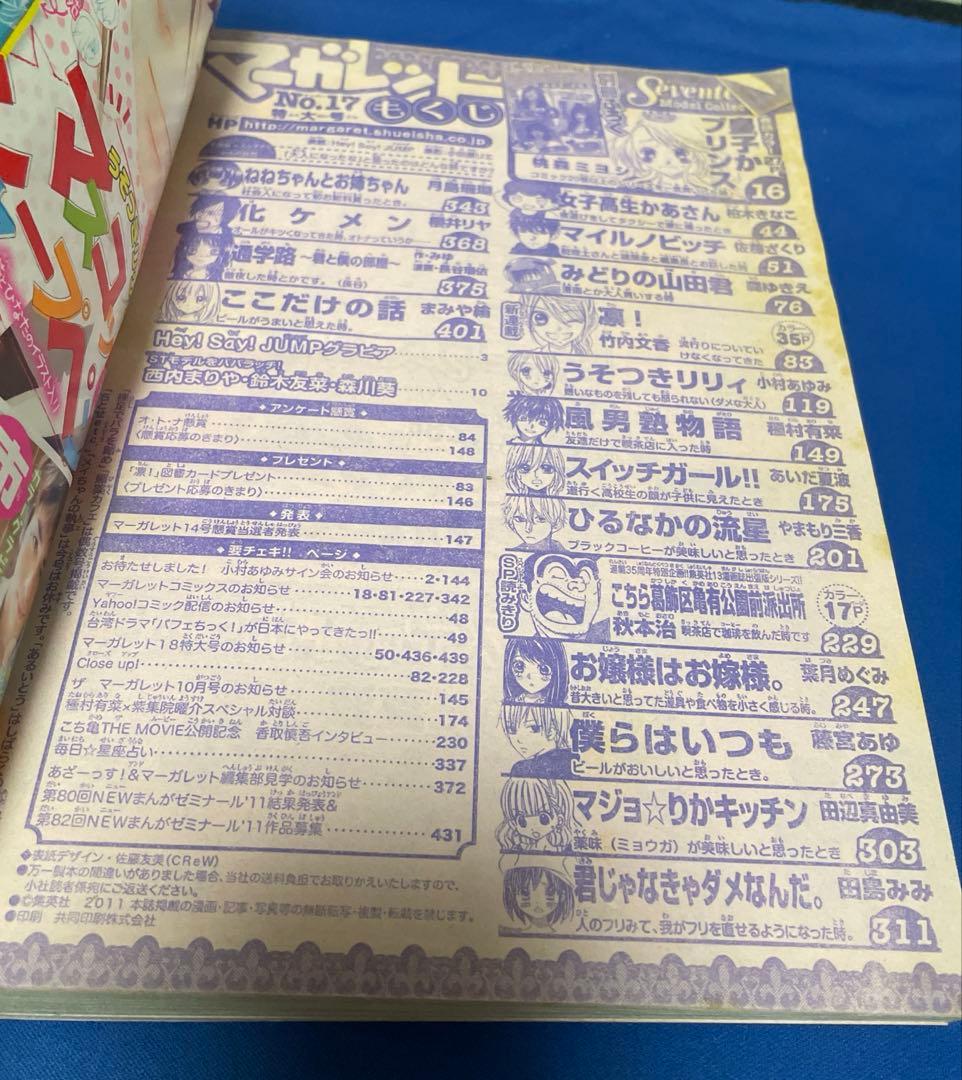 マーガレット
No.17
特大号
もくじ
HP http://margaret.shueisha.co.jp
表紙 Hey! Say! JUMP
ねねちゃんとお姉ちゃん
343
化ケメン
368
オールがキツくなってきた時、オトナっていうか
通学路 ～君と僕の部屋～
作・みゆ
375
徹夜した時とかです。(長谷)
ここだけの話 まみや綸
401
ビールがうまいと思えた時。
Hey! Say! JUMPグラビア 3
STモデルをパパラッチ!
西内まりや・鈴木友菜・森川葵 10
アンケート懸賞
オ・ト・ナ懸賞 84
〈懸賞応募のきまり〉 148
プレゼント
「凛!」図書カードプレゼント 83
〈プレゼント応募のきまり〉 146
発表
マーガレット14号懸賞当選者発表 147
要チェキ!! ページ
お待たせしました! 小村あゆみサイン会のお知らせ 2・144
マーガレットコミックスのお知らせ 18・81・227・342
Yahoo!コミック配信のお知らせ 48
台湾ドラマ「パフェちっく!」が日本にやってきたっ!! 49
マーガレット18特大号のお知らせ 50・436・439
Close up! 82・228
ザ マーガレット10月号のお知らせ 145
種村有菜×紫集院曜介スペシャル対談 174
こち亀THE MOVIE公開記念 香取慎吾インタビュー 230
毎日☆星座占い 337
あざーっす!&マーガレット編集部見学のお知らせ 372
第80回NEWまんがゼミナール'11結果発表&
第82回NEWまんがゼミナール'11作品募集 431
◆表紙デザイン・佐藤友美(CReW)
●万一製本の間違いがありました場合、当社の送料負担でお取りかえいたしますので、
小社読者係宛にご返送ください。
●©集英社 2011 本誌掲載の漫画・記事・写真等の無断転写・複製・転載を禁じます。
●印刷 共同印刷株式会社
Seventeen
Model Collec
プリンス
桃森ミヨシ
16
女子高生かあさん 柏木きなこ
44
マイルノビッチ 佐藤ざくり
51
みどりの山田君
76
新連載
凛!
竹内文香
流行りについていけなくなってきた
カラー
35P
83
うそつきリリィ 小村あゆみ
嫌いなものを残しても怒られない(ダメな大人)
119
風男塾物語 種村有菜
友達だけで喫茶店に入った時
149
スイッチガール!! あいだ夏波
道行く高校生の顔が子供に見えたとき
175
ひるなかの流星 やまもり三香
ブラックコーヒーが美味しいと思ったとき
201
SP読みきり
連載35周年特別企画!!集英社13漫画誌出張版シリーズ!!
こちら葛飾区亀有公園前派出所
秋本治 喫茶店で珈琲を飲んだ時です
カラー
17P
229
お嬢様はお嫁様。 葉月めぐみ
昔大きいと思ってた道具や食べ物を小さく感じる時。
247
僕らはいつも 藤宮あゆ
ビールがおいしいと思ったとき。
273
マジョ☆りかキッチン 田辺真由美
薬味(ミョウガ)が美味しいと思ったとき
303
君じゃなきゃダメなんだ。 田島みみ
人のフリみて、我がフリを直せるようになった時。
311